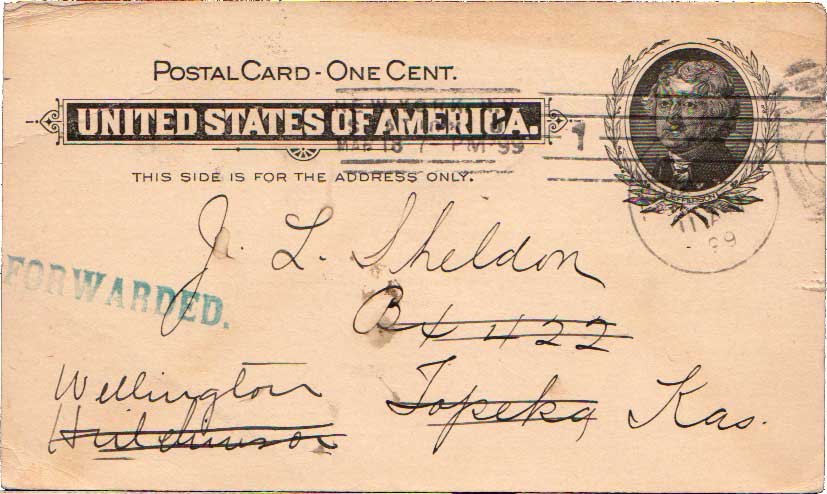 POSTAL CARD - ONE CENT.
UNITED STATES OF AMERICA.
NEW YORK, N.Y.
MAR 18 7 - PM 99
1
THIS SIDE IS FOR THE ADDRESS ONLY.
JEFFERSON
99
J. L. Sheldon
FORWARDED.
Bx 422
Wellington
Topeka, Kas.
Hutchinson